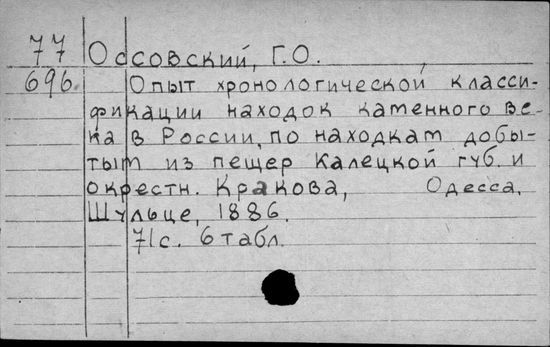 77 Оссовский, Г.О.
696 Опыт хронологической класси-
фикации находок каменного ве-
ка в России, по находкам добы-
тым из пещер Калецкой губ. и
окрестн. Кракова, Одесса,
Шульце, 1886.
71с. 6 табл.